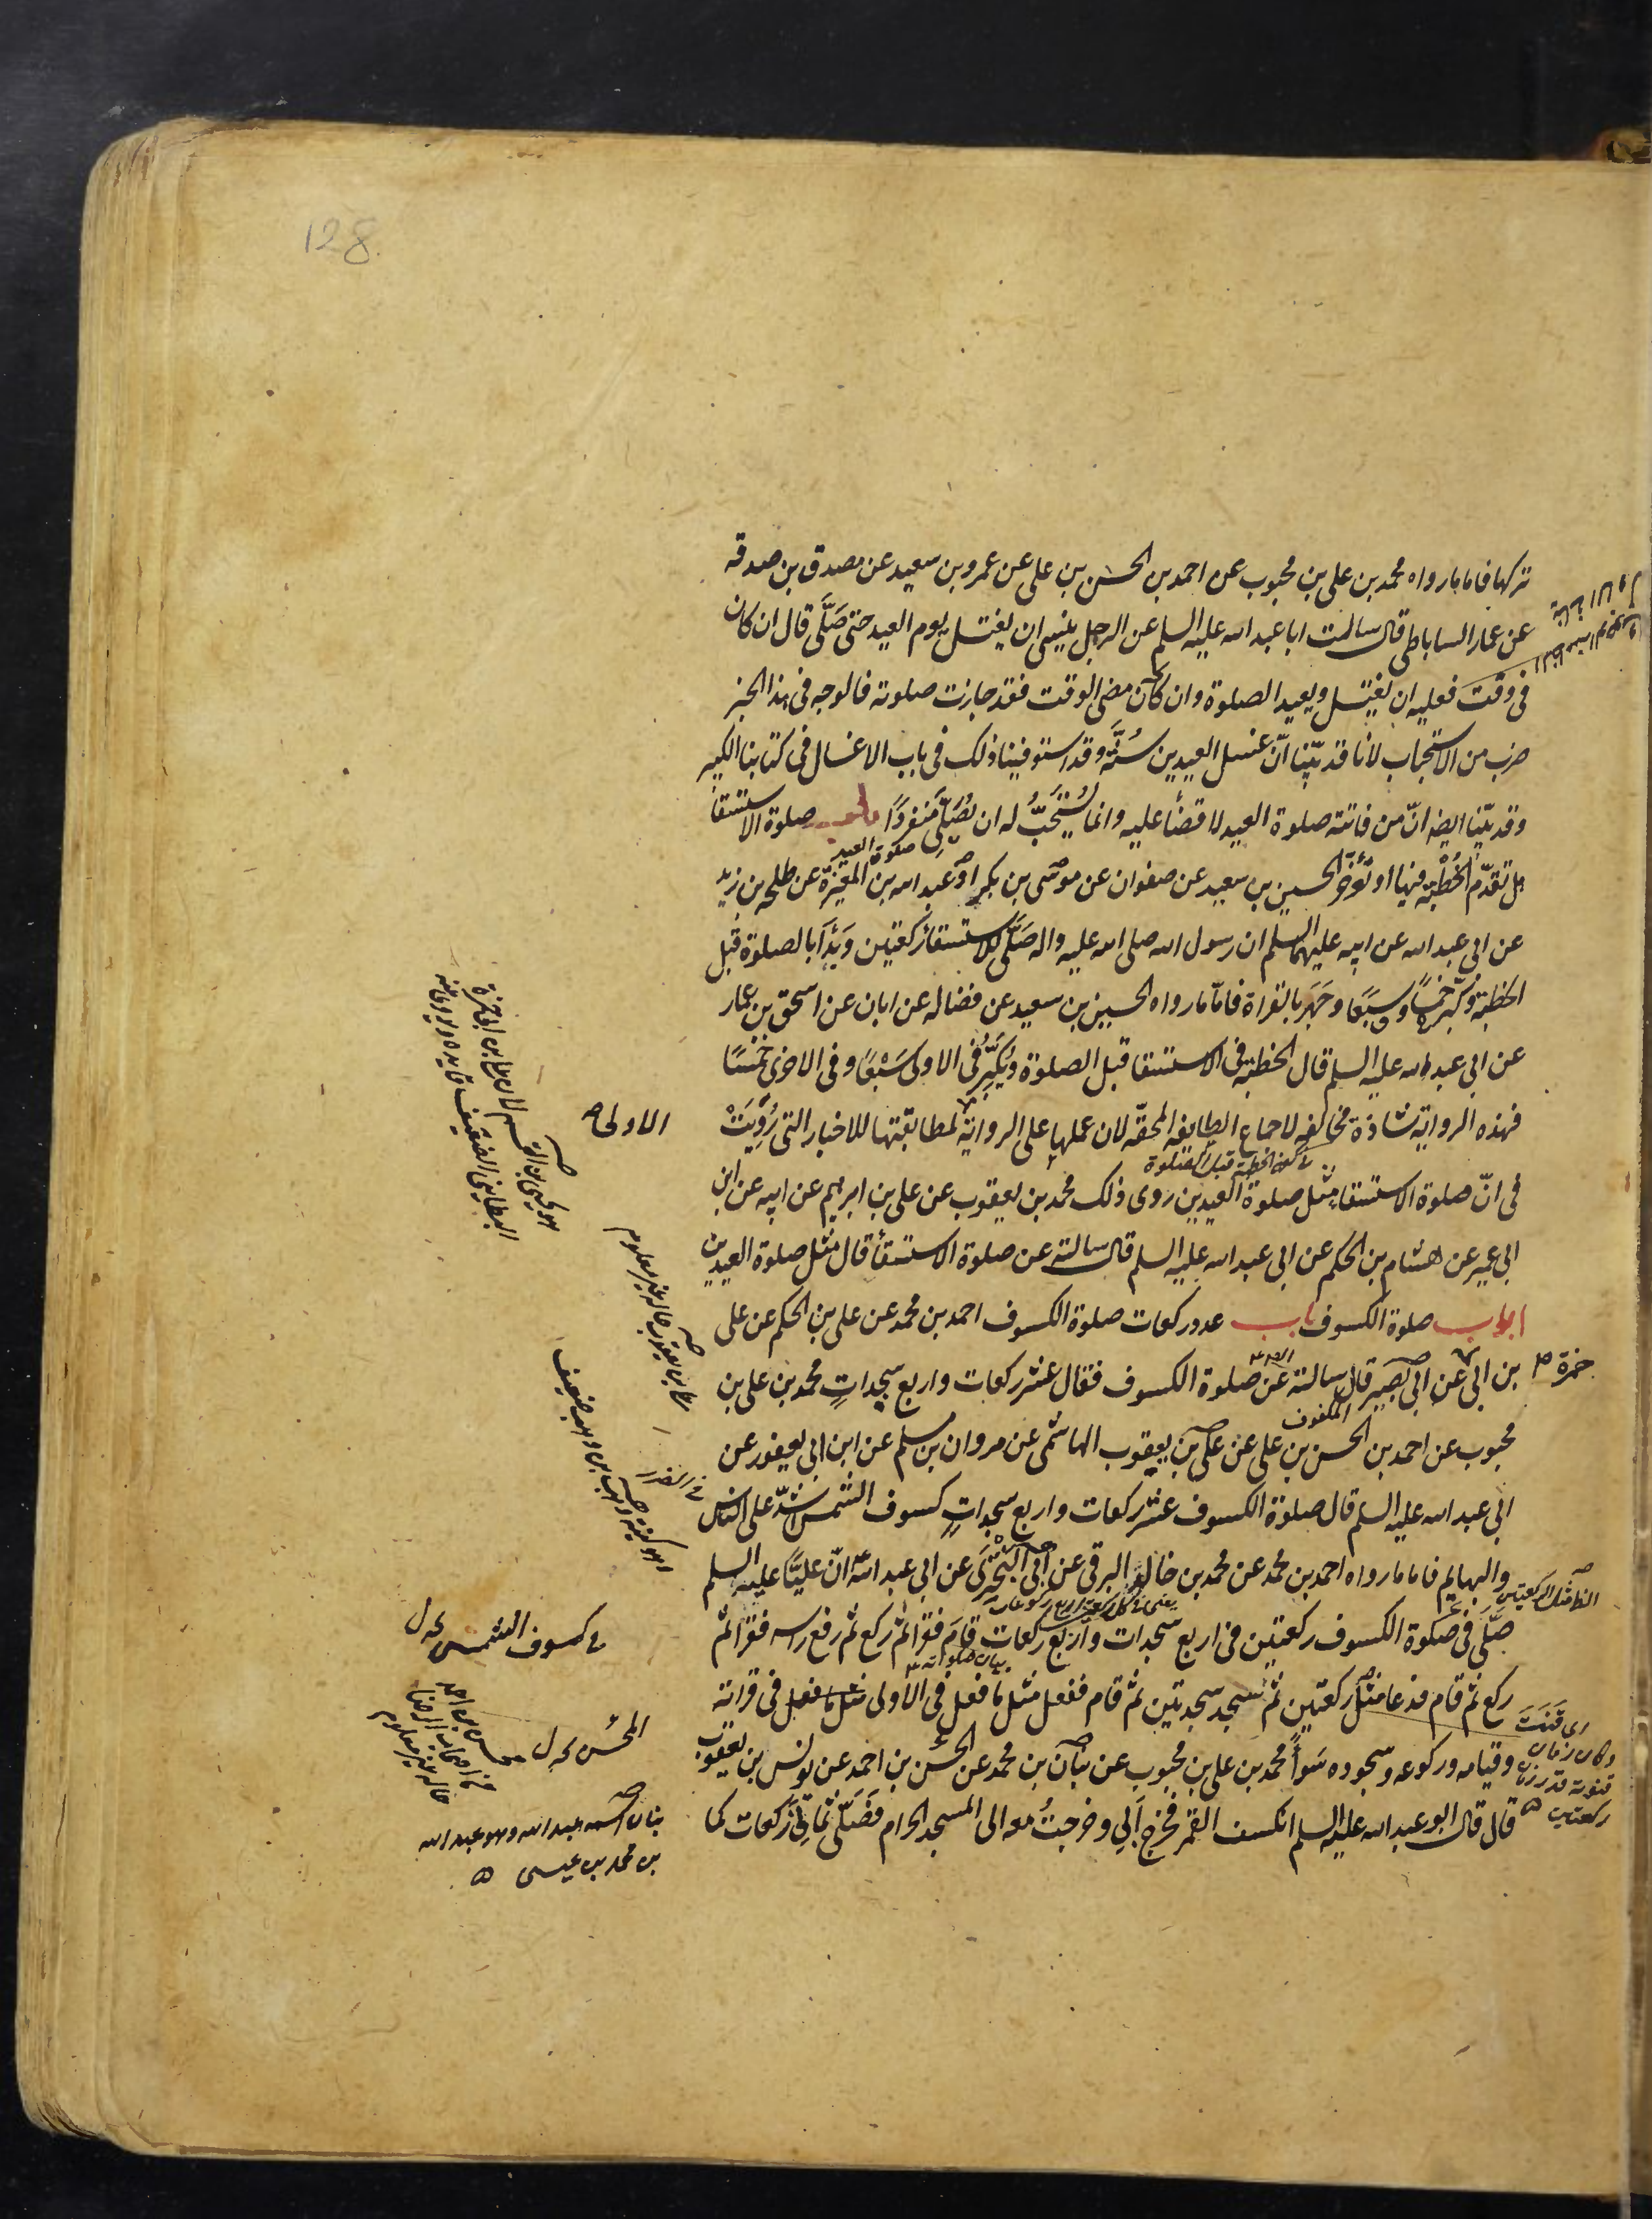 128
تركها فاما ما رواه محمد بن علي بن محبوب عن احمد بن الحسن بن علي عن عمرو بن سعيد عن مصدق بن صدقه
عن عمار الساباطي قال سالت ابا عبد الله عليه السلم عن الرجل ينسى ان يغتسل يوم العيد حتى صَلَّى قال ان كان
في وقت فعليه ان يغتسل ويعيد الصلوة وان كان مضى الوقت فقد جازت صلوته فالوجه في هذا الخبر
ضرب من الاستحباب لانا قد بيّنا انّ غسل العيدين سُنَّة وقد استوفينا ذلك في باب الاغسال في كتابنا الكبير
وقد بيّنا ايضا انّ من فاتته صلوة العيد لا قضاء عليه وانما يُستَحَبُّ له ان يُصَلِّي مُنفردًا باب صلوة الاستسقا
صلوة العيد
هل تقدّم الخُطْبة فيها او تُؤخَّر الحسين بن سعيد عن صفوان عن موسى بن بكر او عبد الله بن المغيرة عن طلحه بن زيد
عن ابي عبد الله عن ابيه عليهما السلم ان رسول الله صلى الله عليه واله صَلَّى للاستسقاء ركعتين وَبَدَأ بالصلوة قبل
الخطبة وكبّر خمسًا وسبعًا وجَهَر بالقراة فامّا ما رواه الحسين بن سعيد عن فضاله عن ابان عن اسحق بن عمار
عن ابي عبد الله عليه السلم قال الخطبة في الاستسقا قبل الصلوة ويُكَبِّر في الاولى سَبْعًا وفي الاخرى خَمْسًا
فهذه الرواية شاذة مخالفه لاجماع الطايفه المحقّه لان عملها على الرواية لمطابقتها للاخبار التي رُوِيَتْ
الاولى
في كون الخطبة قبل الصلوة
في انّ صلوة الاستسقا مثل صلوة العيدين روى ذلك محمد بن يعقوب عن علي بن ابرهيم عن ابيه عن ابن
ابي عمير عن هشام بن الحكم عن ابي عبد الله عليه السلم قال سالته عن صلوة الاستسقاء قال مثل صلوة العيدين
ابواب صلوة الكسوف باب عدد ركعات صلوة الكسوف احمد بن محمد عن علي بن الحكم عن علي
حمزة
بن ابي عن ابي بصير قال سالته عن صلوة الكسوف فقال عشر ركعات واربع سجداتٍ محمد بن علي بن
المكفوف
محبوب عن احمد بن الحسن بن علي عن علي بن يعقوب الهاشمي عن مروان بن مسلم عن ابن ابي يعفور عن
ابي عبد الله عليه السلم قال صلوة الكسوف عشر ركعات واربع سجداتٍ كسوف الشمس اشدّ على الناس
والبهايم فاما ما رواه احمد بن محمد عن محمد بن خالد البرقي عن ابي البَخْتَري عن ابي عبد الله انّ عليًّا عليه السلم
يعني في كل ركعة اربع ركوعات
صَلَّى في صلوة الكسوف ركعتين في اربع سجدات واربع ركعات قام فقرا ثم ركع ثم رفع راسه فقرا ثم
ركع ثم قام فدعا مثل ركعتين ثم سجد سجدتين ثم قام ففعل مثل ما فعل في الاولى مثل ما فعل في قراته
وقيامه وركوعه وسجوده سَواءً محمد بن علي بن محبوب عن بنان بن محمد عن المحسن بن احمد عن يونس بن يعقوب
قال قال ابو عبد الله عليه السلم انكسف القمر فخرج اَبي وخرجتُ معه الى المسجد الحرام فَصَلَّى ثماني ركعات كما
في كسوف الشمس
المحسن
محسن بن احمد
من اصحاب الرضا
حاله غير معلوم
بنان اسمه عبد الله وهو عبد الله
بن محمد بن عيسى
علي بن يعقوب حاله غير معلوم
اي قنت
قنوته قدر
ركعتين